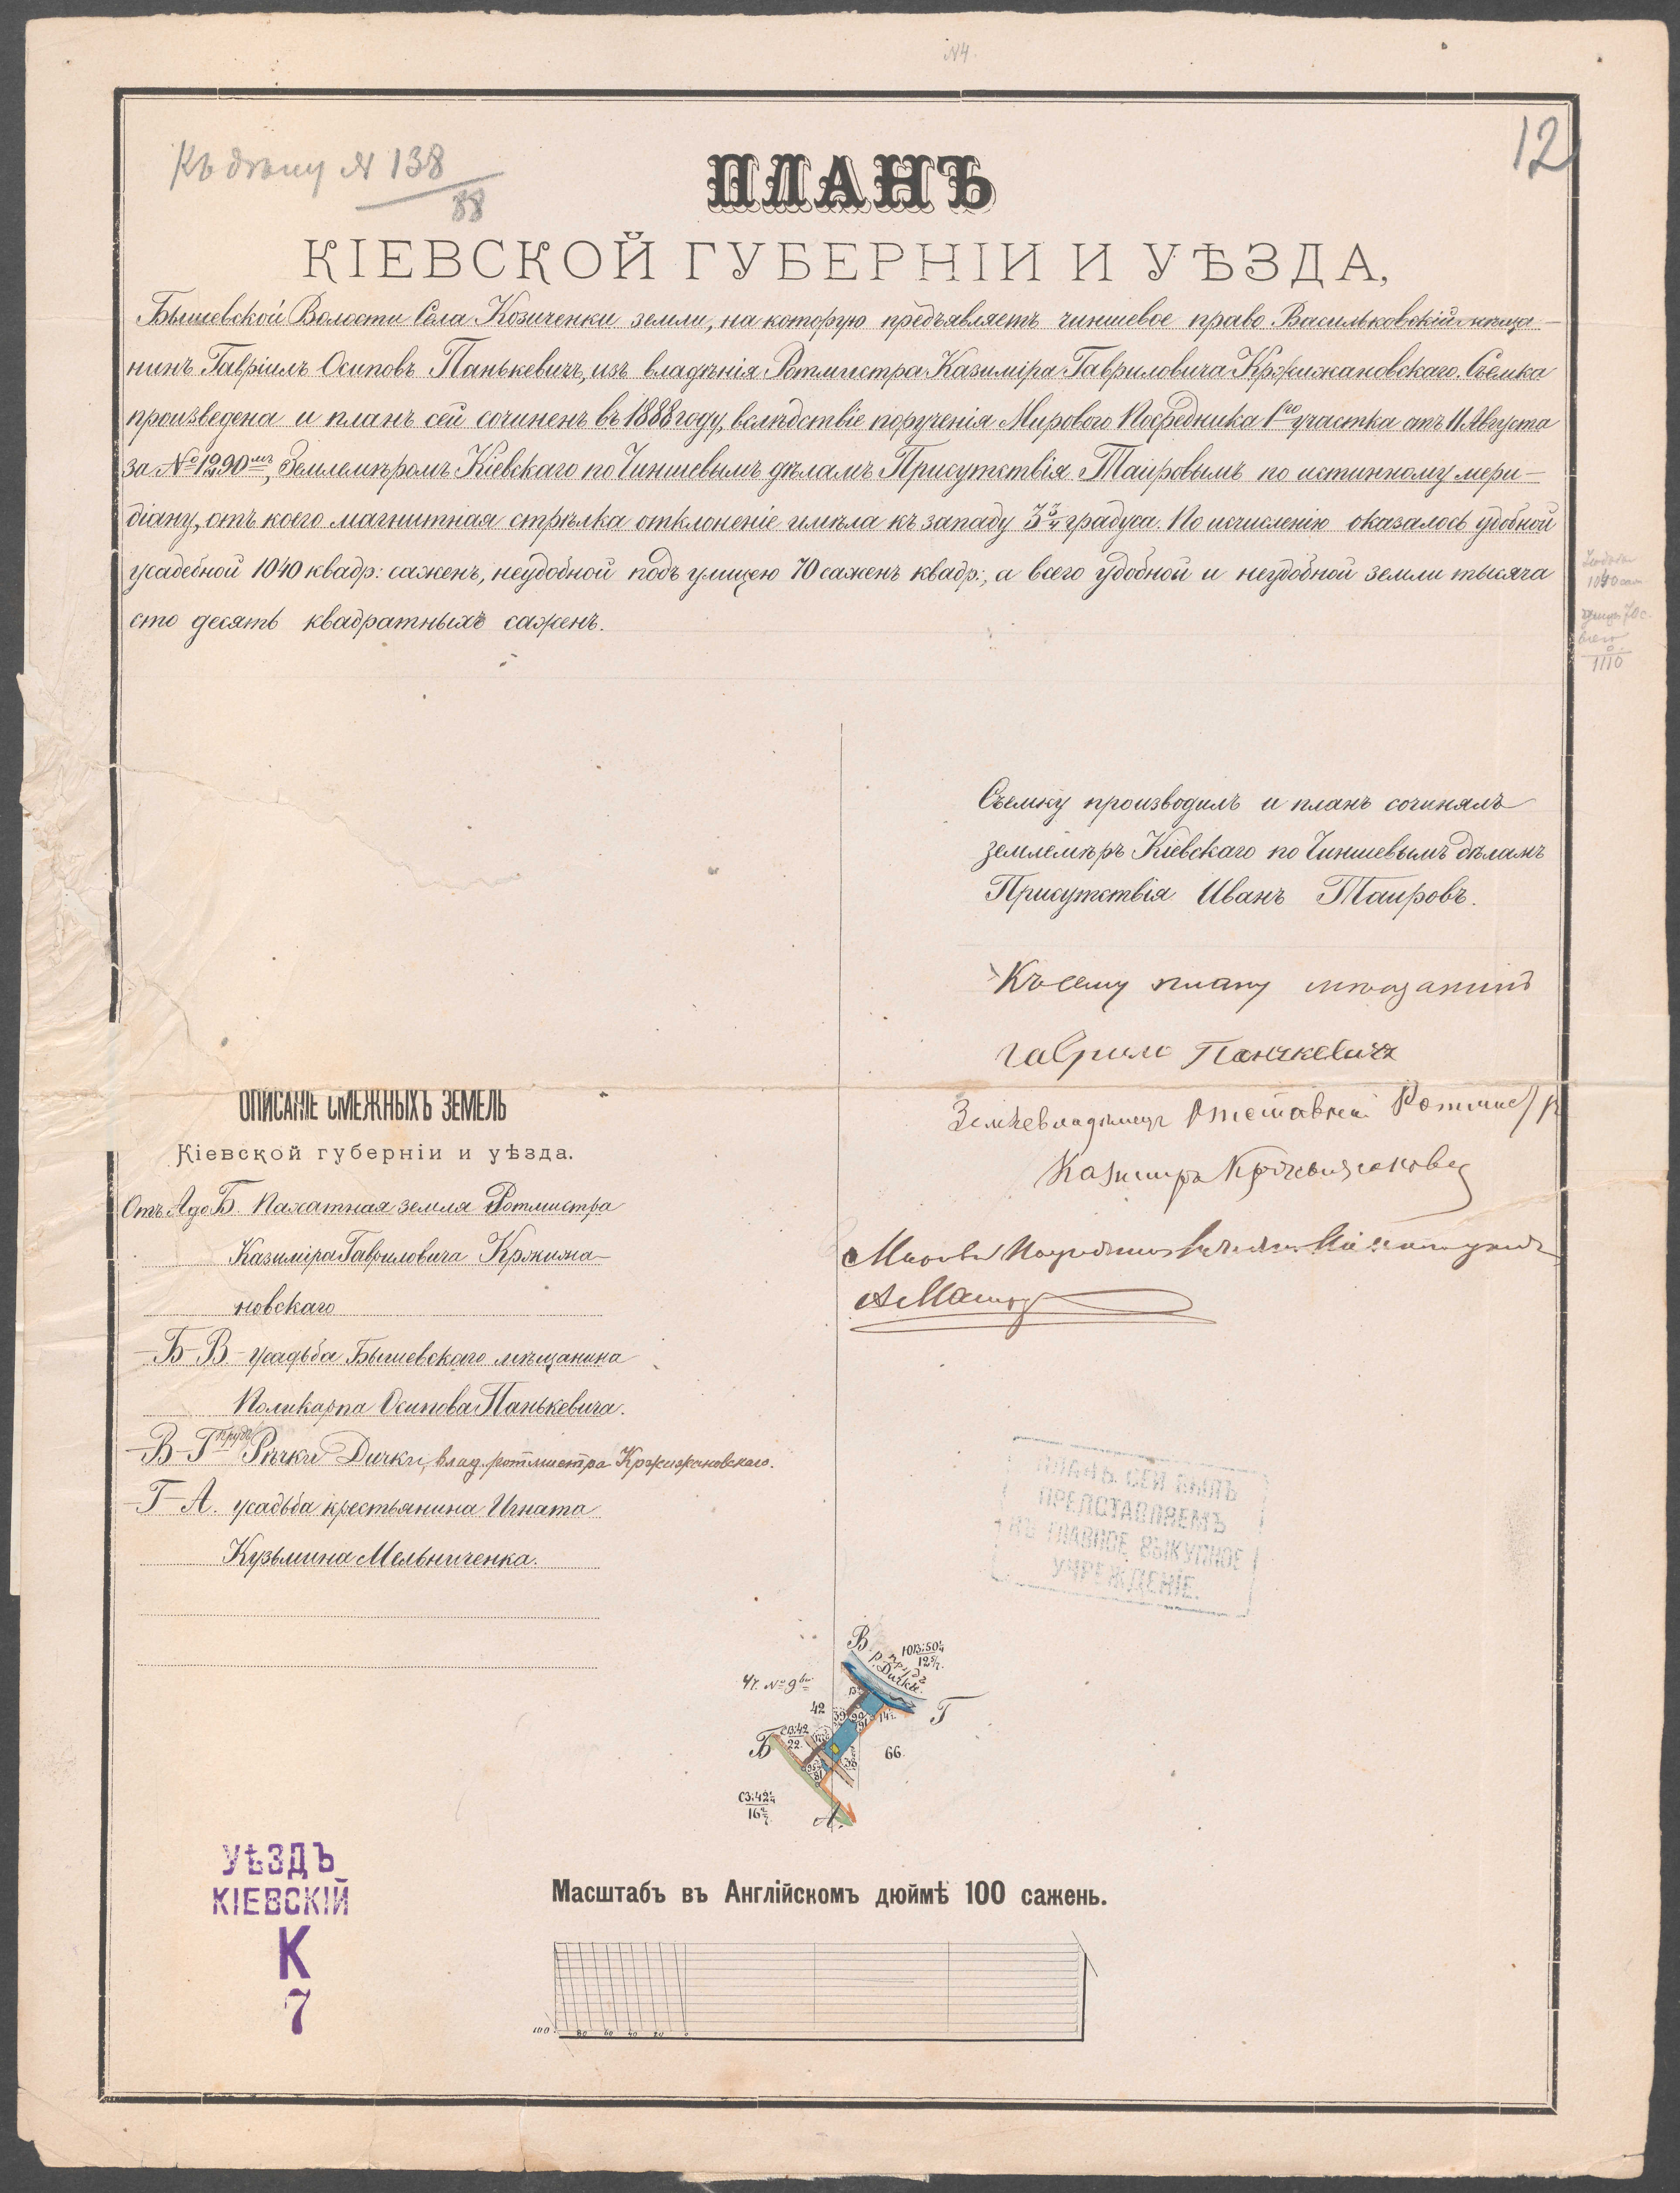 N4.
12
Къ дѣлу N 138
88
ПЛАНЪ
КІЕВСКОЙ ГУБЕРНІИ И УѢЗДА,
Бышевской Волости Села Козиченки земли, на которую предъявляетъ чиншевое право Васильковскій мѣща-
нинъ Гавріилъ Осиповъ Панькевичъ, изъ владѣнія Ротмистра Казиміра Гавриловича Кржижановскаго. Съемка
произведена и планъ сей сочиненъ въ 1888 году, вслѣдствіе порученія Мирового Посредника 1го участка отъ 11 Августа
за № 1290мъ, Землемѣромъ Кіевскаго по Чиншевымъ дѣламъ Присутствія Таировымъ по истинному мери-
діану, отъ коего магнитная стрѣлка отклоненіе имѣла къ западу градуса. По исчисленію оказалось удобной
усадебной 1040 квадр: саженъ, неудобной подъ улицею 70 саженъ квадр:, а всего удобной и неудобной земли тысяча
сто десять квадратныхъ саженъ.
1040 саж
улицы 70 с.
всего
1110
Съемку производилъ и планъ сочинялъ
землемѣръ Кіевскаго по Чиншевымъ дѣламъ
Присутствія Иванъ Таировъ.
Къ сему плану мѣщанинъ
Гаврило Панькевичъ
Землевладѣлецъ Отставной Ротмистръ
Казимиръ Кржижановск
Мировой Посредникъ
ОПИСАНІЕ СМЕЖНЫХЪ ЗЕМЕЛЬ
Кіевской губерніи и уѣзда.
Отъ А до Б. Пахатная земля Ротмистра
Казиміра Гавриловича Кржижа-
новскаго
Б-В- усадьба Бышевскаго мѣщанина
Поликарпа Осипова Панькевича.
В-Г- прудъ Рѣчки Дички, влад. ротмистра Кржижановскаго.
Г-А. усадьба крестьянина Игната
Кузьмина Мельниченка.
ПЛАНЪ СЕЙ БЫЛЪ
ПРЕДСТАВЛЯЕМЪ
ВЪ ГЛАВНОЕ ВЫКУПНОЕ
УЧРЕЖДЕНІЕ.
В
прудъ
р. Дички.
уч. № 9вй
42
Г
Б
66.
А.
УѢЗДЪ
КІЕВСКІЙ
К
7
Масштабъ въ Англійскомъ дюймѣ 100 сажень.
100 80 60 40 20 0